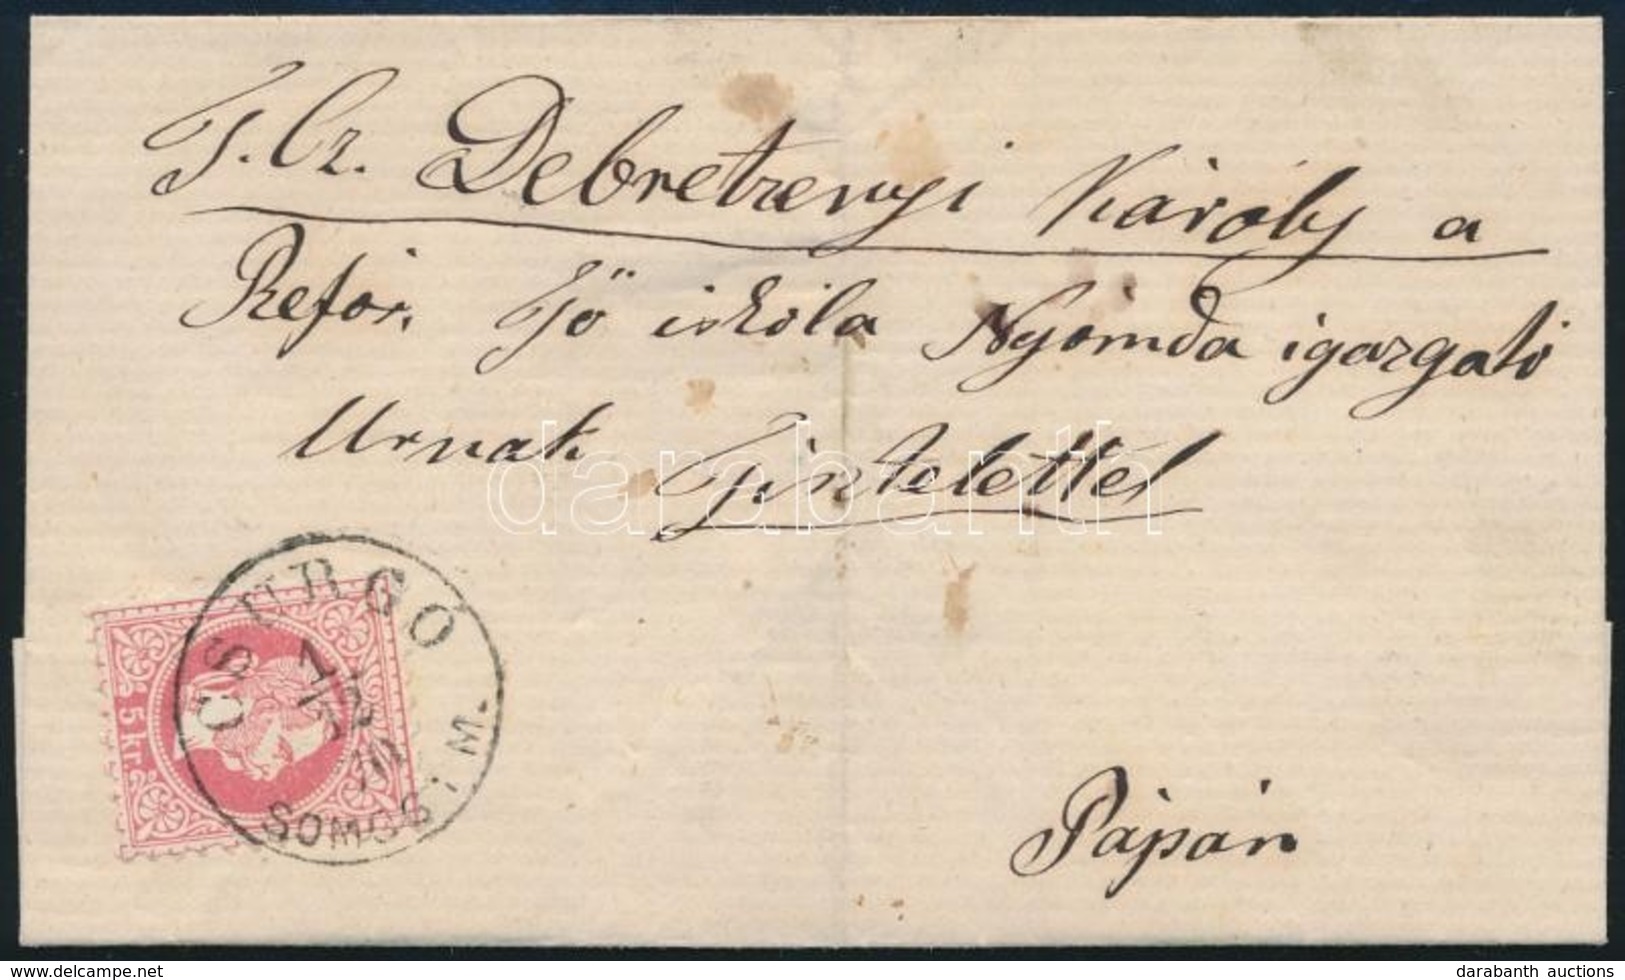 T. Cz. Debretzenyi Károly a
Refór. Fö iskóla Nyomda igazgató
Urnak Tisztelettel
Pápán
CSURGÓ
SOMOGY M.
5 kr
darabanth
www.darabanth.com
darabanth auctions